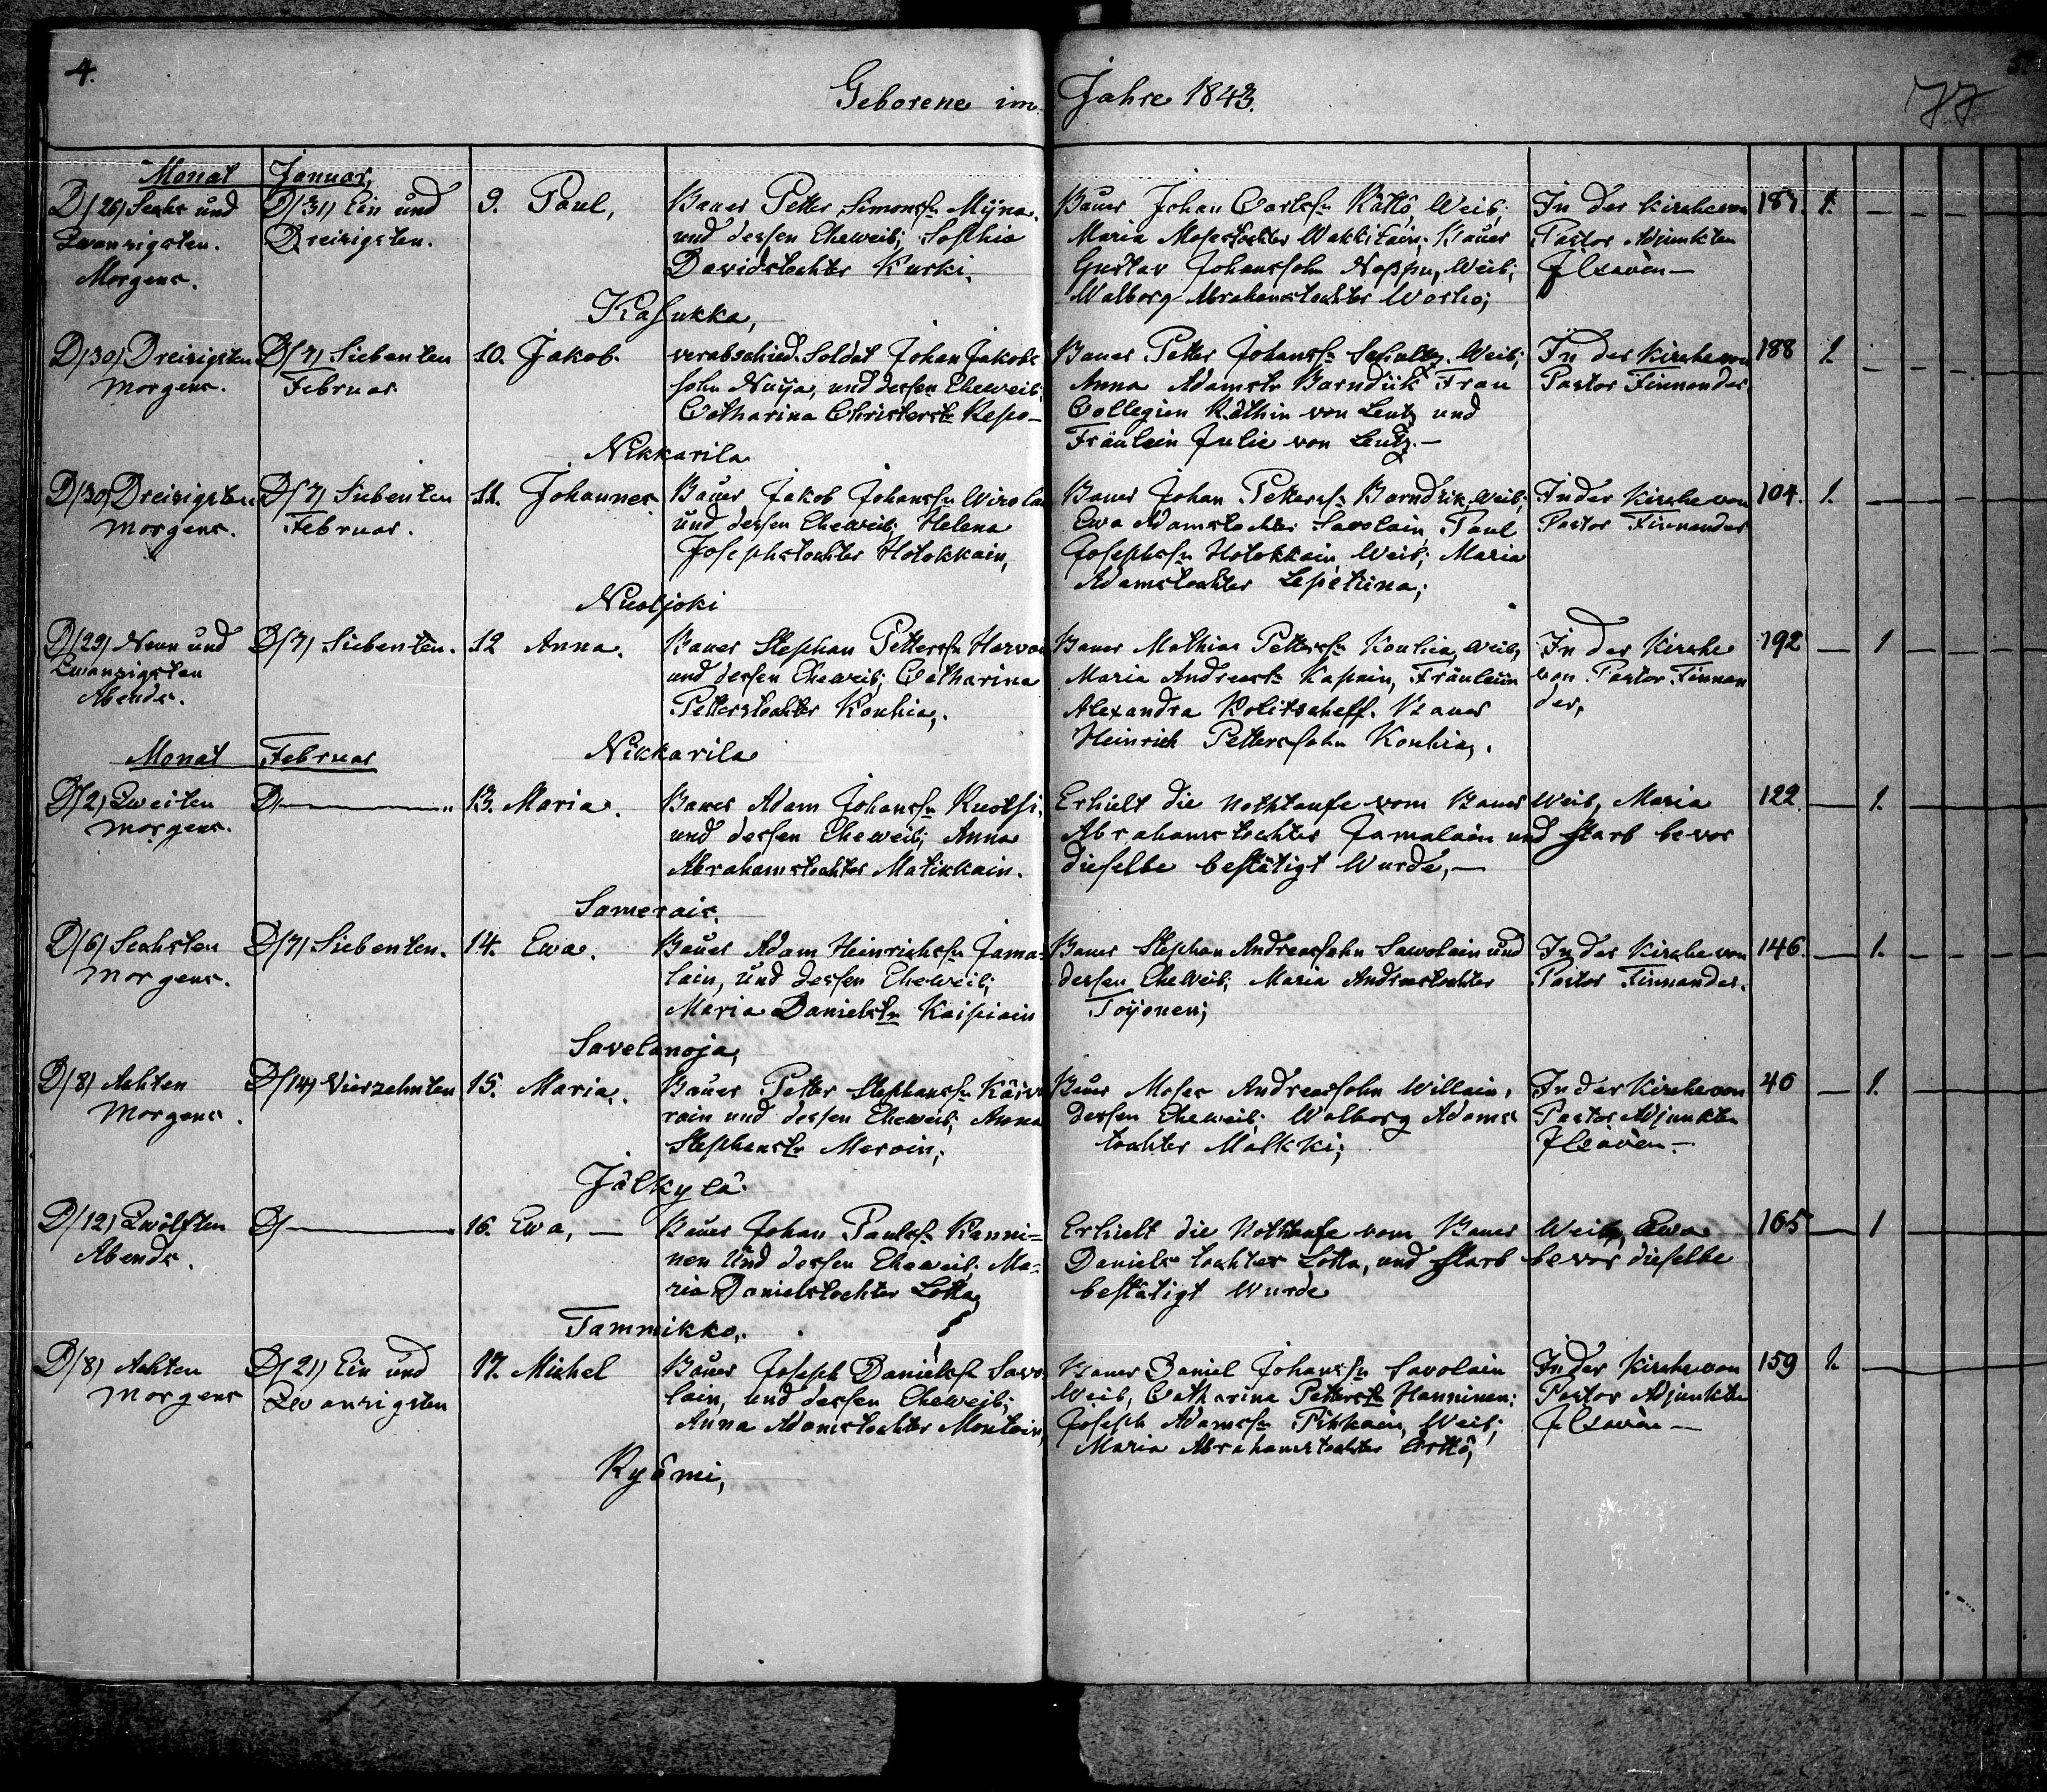 4.
5.
Geborene im Jahre 1843.
77
Monat Januar,
D/26) Sechs und
Zwanzigsten.
Morgens.
D/31) Ein und
Dreizigsten.
9. Paul,
Bauer Petter Simonssn Mÿna.
und dessen Eheweib; Sophia
Davidstochter Kurki.
Kasukka,
Bauer Johan Carlssn Rättö, Weib;
Maria Mosestochter Wakkilain; Bauer
Gustav Johanssohn Noppu, Weib;
Walborg Abrahamstochter Warho;
In der Kirche von
Pastor Adjunkten
187. 1.
D/30) Dreizigsten
Morgens.
D/7) Siebenten
Februar
10. Jakob.
verabschied. Soldat Johan Jakobs
sohn Nuija, und dessen Eheweib;
Catharina Christerstr Repo-
Nikkarila
Bauer Petter Johanssn Schultz, Weib;
Anna Adamstr Barndük Frau
Collegien Räthin von Leutz und
Fräulein Julie von Leutz.-
In der Kirche von
Pastor Finnander
188 1.
D/30) Dreizigsten
Morgens.
D/7) Siebenten
Februar.
11. Johannes.
Bauer Jakob Johanssn Wirolai
und dessen Eheweib; Helena
Josephstochter Hotokkain,
Nuoljoki
Bauer Johan Petterssn Barndrik, Weib;
Ewa Adamstochter Savolain, Paul
Josephssn Hotokkain, Weib; Maria
Adamstochter Lepekina;
In der Kirche von
Pastor Finnander
104. 1.
D/29) Neun und
Zwanzigsten
Abends.
D/7) Siebenten.
12 Anna.
Bauer Stephan Petterssn Harvoi
und dessen Eheweib; Catharina
Petterstochter Kouhia,.
Nikkarila
Bauer Mathias Petterssn Kouhia, Weib,
Maria Andreastr Kapain, Fräulein
Alexandra Politscheff. Bauer
Heinrich Petterssohn Kouhia,.
In der Kirche
von Pastor Finnan
der,
192 1
Monat Februar
D/2) Zweiten
Morgens.
D/
13. Maria.
Bauer Adam Johanssn Ruotsi,
und dessen Eheweib; Anna
Abrahamstochter Matikkain.
Somerais,
Erhielt die Nothtaufe vom Bauer Weib, Maria
Abrahamstochter Jamalain und starb bevor
dieselbe bestätigt Wurde,-
122. 1.
D/6) Sechsten
Morgens.
D/7) Siebenten.
14. Ewa.
Bauer Adam Heinrichssn Jama-
lain, und dessen Eheweib;
Maria Danielstr Kaipiain
Savelanoja,
Bauer Stephan Andreassohn Sawolain und
dessen Eheweib; Maria Andreastochter
Töijonen;
In der Kirche von
Pastor Finnander.
146. 1.
D/8) Achten
Morgens.
D/14) Vierzehnten
15. Maria.
Bauer Petter Stephanssn Kärve
rain und dessen Eheweib; Anna
Stephanstr Meroin;
Jälkylä.
Bauer Moses Andreassohn Willain,
dessen Eheweib; Walborg Adams
tochter Malkki;
In der Kirche von
Pastor Adjunkten
40 1.
D/12) Zwölften
Abends.
D/
16. Ewa,-
Bauer Johan Paulssn Ranni=
nen und dessen Eheweib; Ma=
ria Danielstochter Lotta,
Tammikko,.
Erhielt die Nothtaufe vom Bauer Weib, Ewa
Daniels tochter Lotta, und starb bevor dieselbe
bestätigt Wurde
165 1
D/8) Achten
Morgens
D/21) Ein und
Zwanzigsten
17. Michel
Bauer Joseph Danielssn Savo
lain, und dessen Eheweib;
Anna Adamstochter Montoin,
Ryömi,
Bauer Daniel Johanssn Savolain
Weib, Catharina Petterstr Hanninen;
Joseph Adamssn Pikkain, Weib;
Maria Abrahamstochter Arttö;
In der Kirche von
Pastor Adjunkten
159 1.